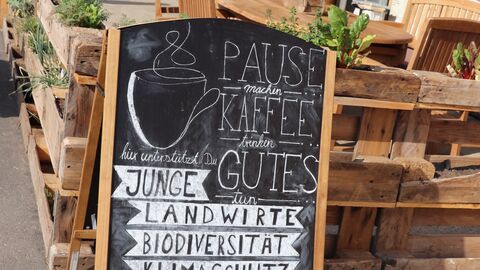 PAUSE
machen
KAFFEE
trinken
hier unterstützt Du
GUTES
tun
JUNGE
LANDWIRTE
BIODIVERSITÄT
KLIMASCHUTZ